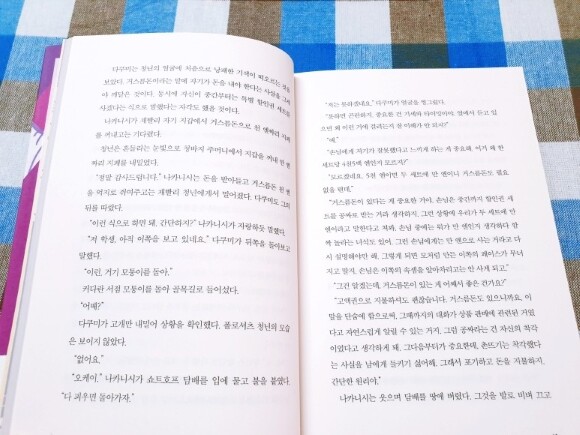 다쿠미는 청년의 얼굴에 처음으로 낭패한 기색이 떠오르는 것을
보았다. 거스름돈이라는 말에 자기가 돈을 내야 한다는 사실을 그제
야 깨달은 것이다. 동시에 자신이 중간부터는 특별 할인된 세트를
사겠다는 식으로 말했다는 자각도 했을 것이다.
나카니시가 재빨리 자기 지갑에서 거스름돈으로 천 엔짜리 지폐
를 꺼내고는 기다렸다.
청년은 흔들리는 눈빛으로 청바지 주머니에서 지갑을 꺼내 만 엔
짜리 지폐를 내밀었다.
"정말 감사드립니다." 나카니시는 돈을 받아들고 거스름돈 천 엔
을 억지로 쥐여주고는 재빨리 청년에게서 떨어졌다. 다쿠미도 그의
뒤를 따랐다.
"이런 식으로 하면 돼. 간단하지?" 나카니시가 자랑하듯 말했다.
"저 학생, 아직 이쪽을 보고 있네요." 다쿠미가 뒤쪽을 돌아보고
말했다.
"이런, 거기 모퉁이를 돌아."
커다란 서점 모퉁이를 돌아 골목길로 들어섰다.
"어때?"
다쿠미가 고개만 내밀어 상황을 확인했다. 폴로셔츠 청년의 모습
은 보이지 않았다.
"없어요."
"오케이." 나카니시가 쇼트호프 담배를 입에 물고 불을 붙였다.
"다 피우면 돌아가자."
"저는 못하겠네요." 다쿠미가 얼굴을 찡그렸다.
"못하면 곤란하지. 중요한 건 기세와 타이밍이야. 옆에서 듣고 있
으면 왜 이런 거에 걸려드는지 잘 이해가 안 되지?"
"네."
"손님에게 자기가 잘못했다고 느끼게 하는 게 중요해. 여기 왜 한
세트당 4천5백 엔인지 모르지?"
"모르겠네요. 5천 엔이면 두 세트에 만 엔이니 거스름돈도 필요
없을 텐데."
"거스름돈이 있다는 게 중요한 거야. 손님은 중간까지만 할인된 세
트를 공짜로 받는 거라 생각하지. 그런 상황에 우리가 두 세트에 만
엔이라고 말한다고 쳐봐. 손님 중에는 뭐가 만 엔인지 생각하다 깜
짝 놀라는 녀석도 있어. 그런 손님에게는 만 엔으로 사는 거라고 다
시 설명해야만 해. 그렇게 되면 모처럼 만든 이쪽의 페이스가 무너
지고 말지. 손님은 이쪽의 속셈을 알아차리고는 안 사게 되고."
"그건 알겠는데, 거스름돈이 있는 게 어째서 좋은 건가요?"
"고액권으로 지불하셔도 괜찮습니다. 거스름돈도 있으니까요. 이
말을 단숨에 함으로써, 그때까지의 대화가 상품 판매에 관련된 거였
다고 자연스럽게 알릴 수 있는 거지. 그럼 공짜라는 건 자신의 착각
이었다고 생각하게 돼. 그다음부터가 중요한데, 촌뜨기는 착각했다
는 사실을 남에게 들키기 싫어해. 그래서 포기하고 돈을 지불하지.
간단한 원리야."
나카니시는 웃으며 담배를 땅에 버렸다. 그것을 발로 비벼 끄고